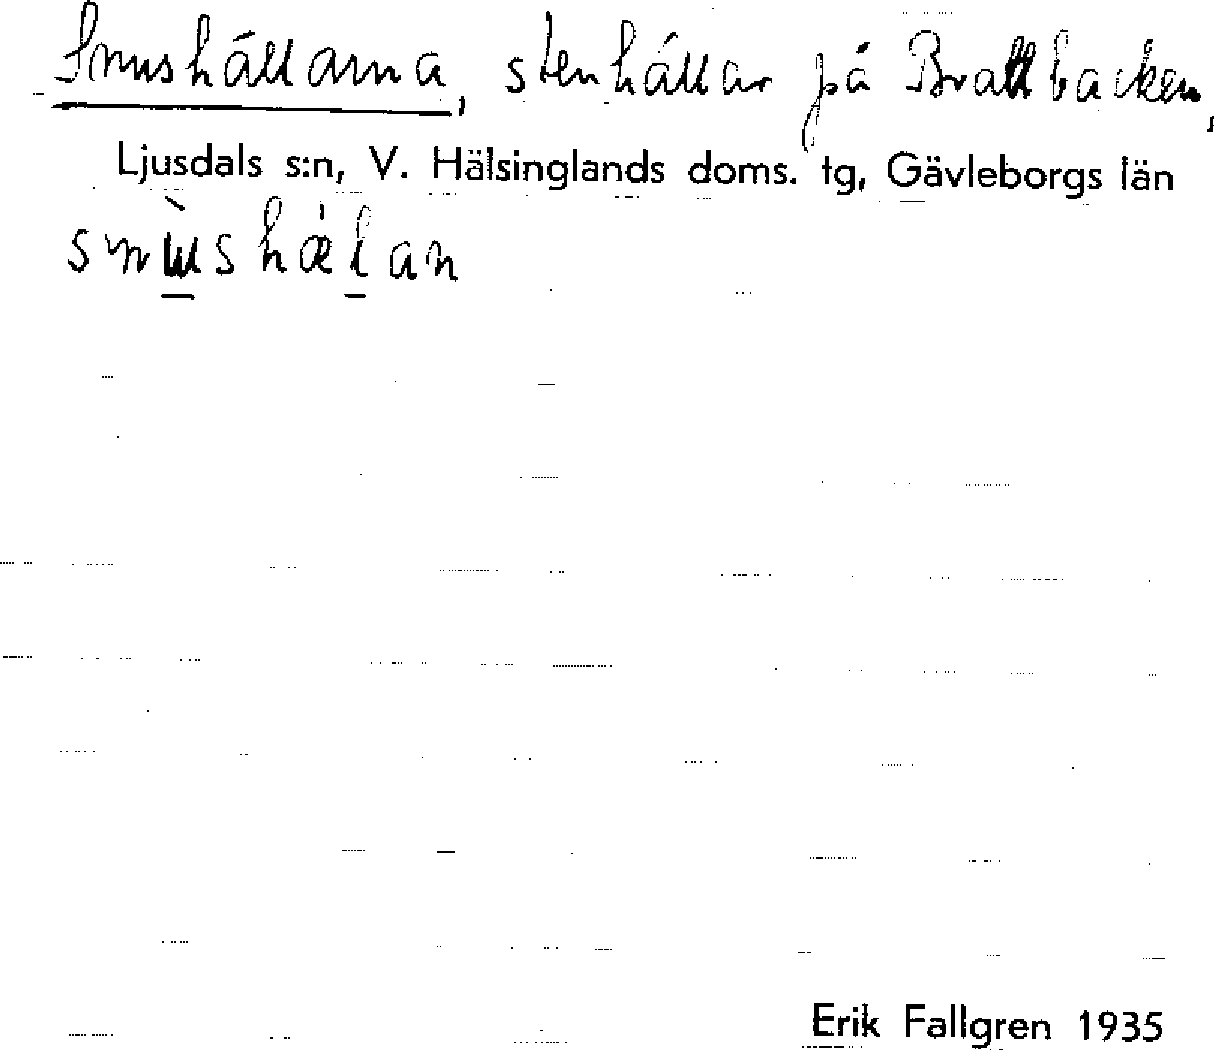 Snushällarna, stenhällar på Brattbacken,
Ljusdals s:n, V. Hälsinglands doms. tg, Gävleborgs län
Erik Fallgren 1935